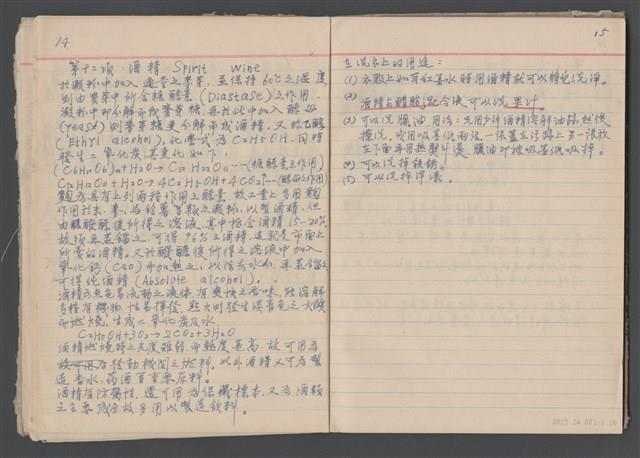 14
第十二項 酒精 Spirit wine
於澱粉中加入適量之麥芽,並保持60℃之溫度
則由麥芽中所含糖酵素(Diastase)之作用
澱粉即分解而成麥芽糖,再於此中加入酵母
(yeast)則麥芽糖更分解而成酒精,又稱乙醇
(Ethyl alcohol),化學式為C2H5OH,同時
發生二氧化炭其變化如下:
(C6H10O5)n+H2O→C12H22O11---(糖酵素之作用)
C12H22O11+H2O→4C2H5OH+4CO2---(酵母之作用)
麴為具有上列兩種作用之酵素,故工業上多用麴
作用於米、麥、馬鈴薯等類之澱粉,以製酒精,但
由醣醱酵後所得之溶液,其中祗含酒精15-20%
故須再蒸餾之,可得96%之酒精,這就是市面上
所賣的酒精。又於醱酵後所得之溶液中加入
氧化鈣(CaO)而加熱之,以除去水分,再蒸餾之
可得純酒精(Absolute alcohol)。
酒精為無色易流動之液体,有爽快之香味,能溶解
多種有機物,性易揮發,點火則發生淡青色之火焰
而燃燒,生成二氧化炭及水,
C2H5OH+3O2→2CO2+3H2O
酒精燃燒時之光度雖弱而熱度甚高,故可用為
發動機関之燃料。此外酒精又可為製
造香水,药酒等重要原料。
酒精有防腐性,還可用為保藏標本,又為酒類
之主要成分故多用以製造飲料。
15
在洗衣上的用途:
(1) 衣服上如有紅墨水時用酒精就可以褪色洗淨。
(2) 酒精与醋酸混合液可以洗果汁
(3) 可以洗腸油 用法:先用少許酒精溶解油跡然後
擦洗,或用吸墨低兩張,一張蓋上污跡上另一張放
在下面再用熱熨斗燙 腸油即被吸墨低吸掉。
(4) 可以洗掉鉄銹。
(5) 可以洗掉洋漆。